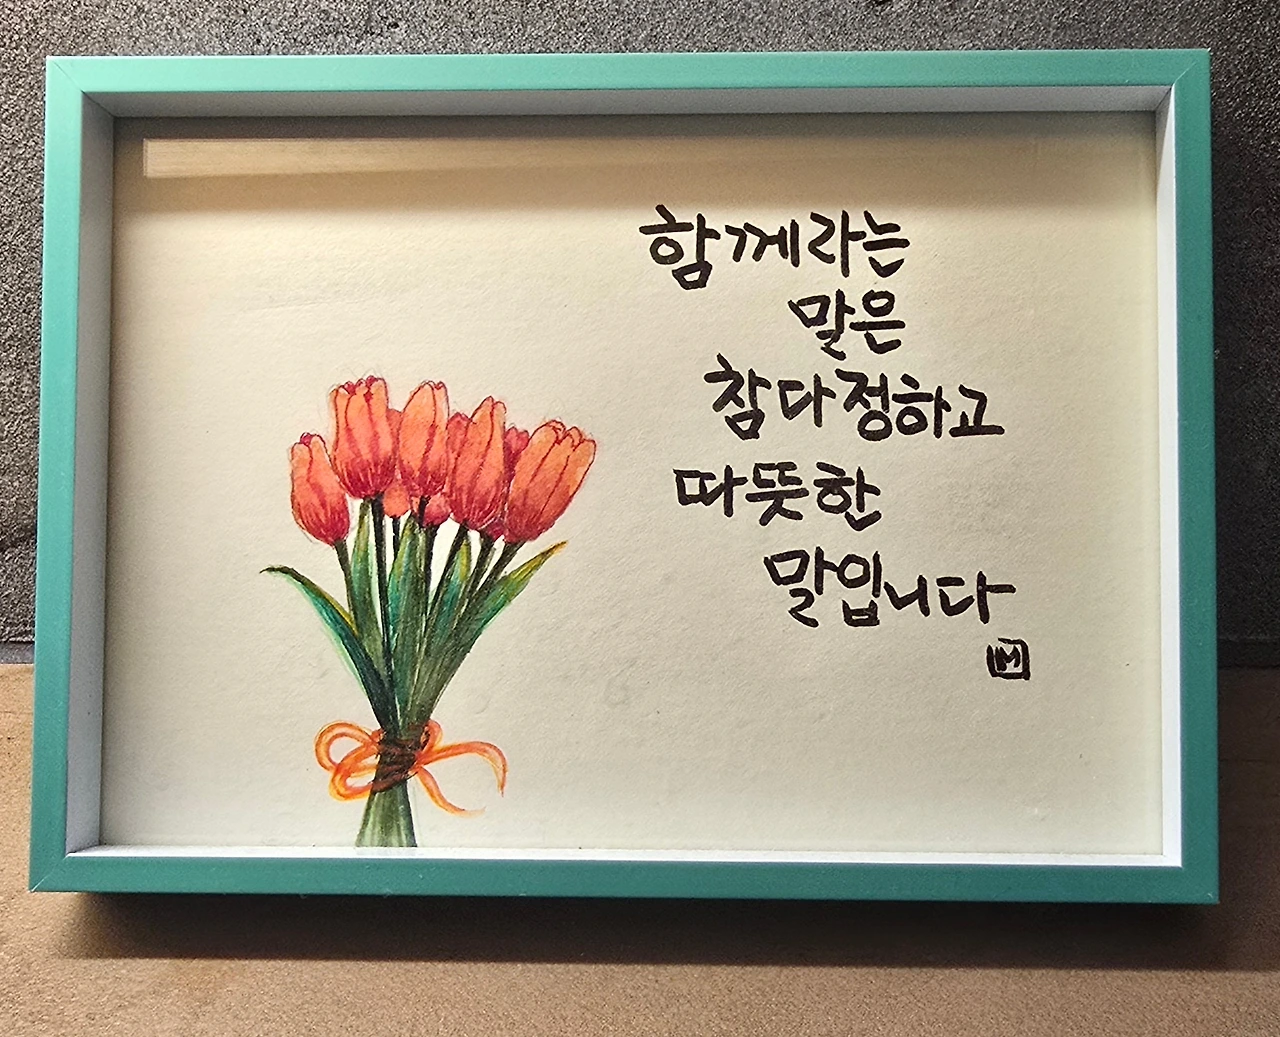 함께라는
말은
참 다정하고
따뜻한
말입니다
M